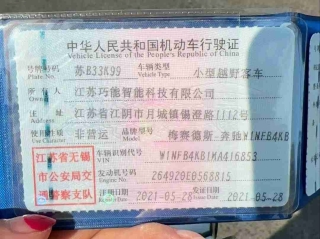 中华人民共和国机动车行驶证
Vehicle License of the People's Republic of China
号牌号码 苏B33K99 车辆类型 小型越野客车
Plate No. Vehicle Type
江苏巧能智能科技有限公司
Owner
住址 江苏省江阴市月城镇锡澄路1112号
Address
使用性质 非营运 品牌型号 梅赛德斯-奔驰W1NFB4KB
Use Character Model
江苏省无锡
市公安局交
通警察支队
车辆识别代号 W1NFB4KB1MA416853
VIN
发动机号码 264920E0568815
Engine No.
注册日期 2021-05-28 发证日期 2021-05-28
Register Date Issue Date